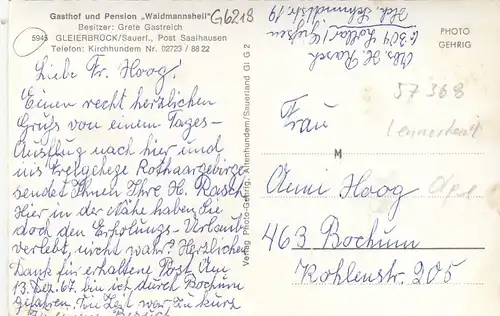 Gasthof und Pension „Waidmannsheil"
Besitzer: Grete Gastreich
5945 GLEIERBRÜCK/Sauerl., Post Saalhausen
Telefon: Kirchhundem Nr. 02723 / 88 22
G6218
Liebe Fr. Hoog!
Einen recht herzlichen
Gruß von einem Tages-
Ausflug nach hier und
ins Rothaargebirge
sendet Ihnen Ihre H. Rasch
Hier in der Nähe haben Sie
doch den Erholungs-Urlaub
verlebt, nicht wahr? Herzlichen
Dank für erhaltene Post. Am
13. Dez. 67. bin ich durch Bochum
gefahren. Die Zeit war zu kurz
Verlag Photo-Gehrig, Altenhundem/Sauerland Gl G 2
Abs. H. Rasch
6304 Lollar/Gießen
PHOTO
GEHRIG
57368
Lennestadt
Frau
M
Anni Hoog
463 Bochum
Kohlenstr. 205